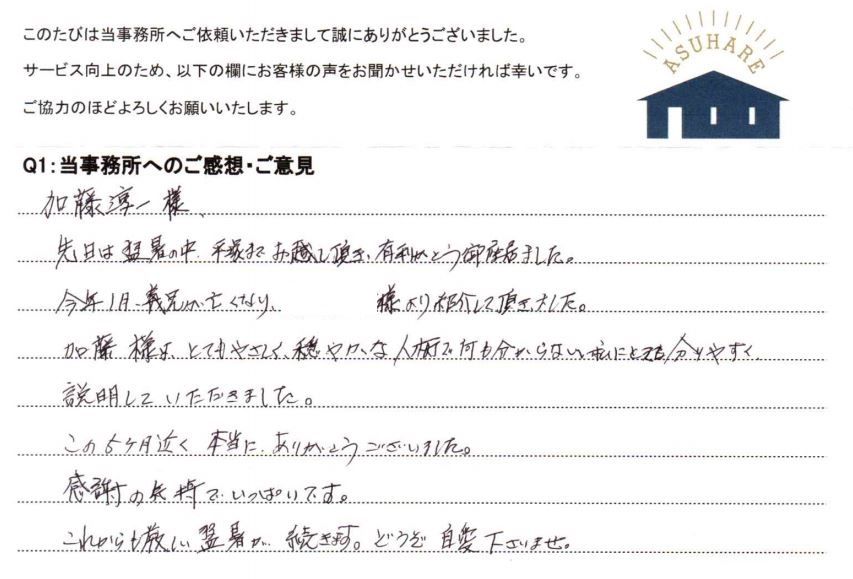 このたびは当事務所へご依頼いただきまして誠にありがとうございました。
サービス向上のため、以下の欄にお客様の声をお聞かせいただければ幸いです。
ご協力のほどよろしくお願いいたします。
ASUHARE
Q1:当事務所へのご感想・ご意見
加藤淳一様、
先日は猛暑の中、平塚までお越し頂き、有利がとう御座居ました。
今年1月、義兄が亡くなり、 様より紹介して頂きました。
加藤様は、とてもやさしく、穏やかな人柄で何も分からない私にとても分りやすく、
説明していただきました。
この5ヶ月近く本当に、ありがとうございました。
感謝の気持でいっぱいです。
これからも厳しい猛暑が、続きます。どうぞ自愛下さいませ。